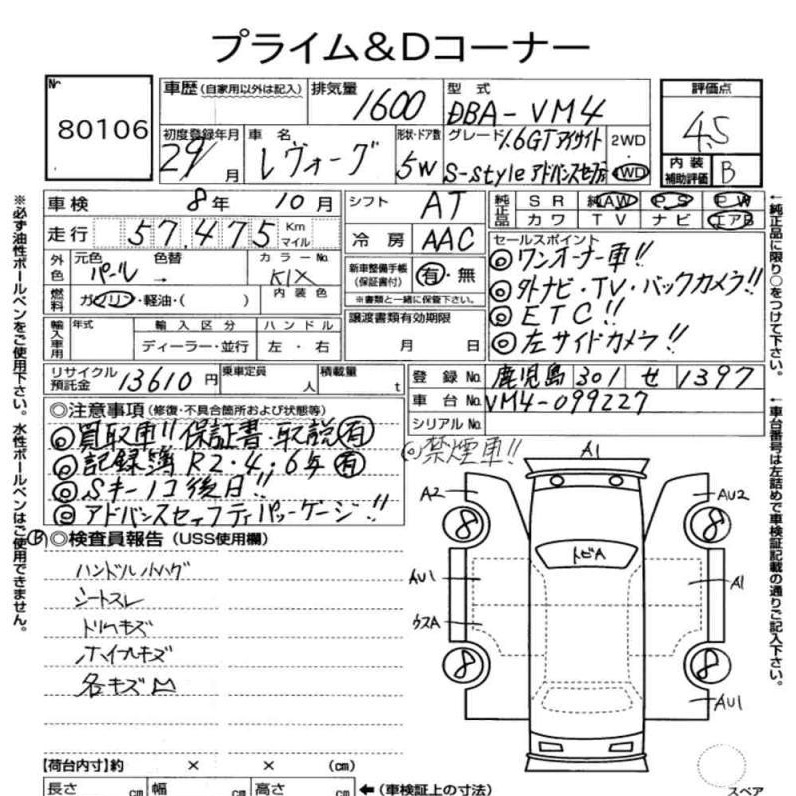 プライム&Dコーナー
№ 80106
車歴 (自家用以外は記入)
排気量 1600
型式 DBA-VM4
評価点 4.5
内装補助評価 B
初度登録年月 29年 月
車名 レヴォーグ
形状・ドア数 5W
グレード 1.6GTアイサイト
S-style アドバンスセフティ
2WD
4WD
車検 8年 10月
走行 57,475 Km マイル
シフト AT
冷房 AAC
純正品 SR 純AW PS PW
カワ TV ナビ エアB
外色 元色 パール 色替 →
カラーNo. K1X
燃料 ガソリン・軽油・( )
内装色
新車整備手帳(保証書付) 有・無
※書類と一緒に保管下さい。
セールスポイント
◎ワンオーナー車!!
◎外ナビ・TV・バックカメラ!!
◎ETC!!
◎左サイドカメラ!!
輸入車用 年式 輸入区分 ハンドル
ディーラー・並行 左・右
譲渡書類有効期限
月 日
リサイクル預託金 13610円
乗車定員 人
積載量 t
登録No. 鹿児島 301 せ 1397
車台No. VM4-099227
シリアルNo.
◎注意事項 (修復・不具合箇所および状態等)
◎買取車!!保証書・取説有
◎記録簿R2・4・6年有
◎Sキー1コ後日!!
◎アドバンスセーフティパッケージ!!
◎禁煙車!!
B ◎検査員報告 (USS使用欄)
ハンドル小ハゲ
シートスレ
トリムキズ
ホイールキズ
各キズ凹
A1
A2
AU2
8
8
トビA
AU1
A1
ウスA
8
8
AU1
スペア
【荷台内寸】約 × × (cm)
長さ cm 幅 cm 高さ cm ←(車検証上の寸法)
※必ず油性ボールペンをご使用下さい。水性ボールペンはご使用できません。
←純正品に限り○をつけて下さい。
←車台番号は左詰めで車検証記載の通りご記入下さい。